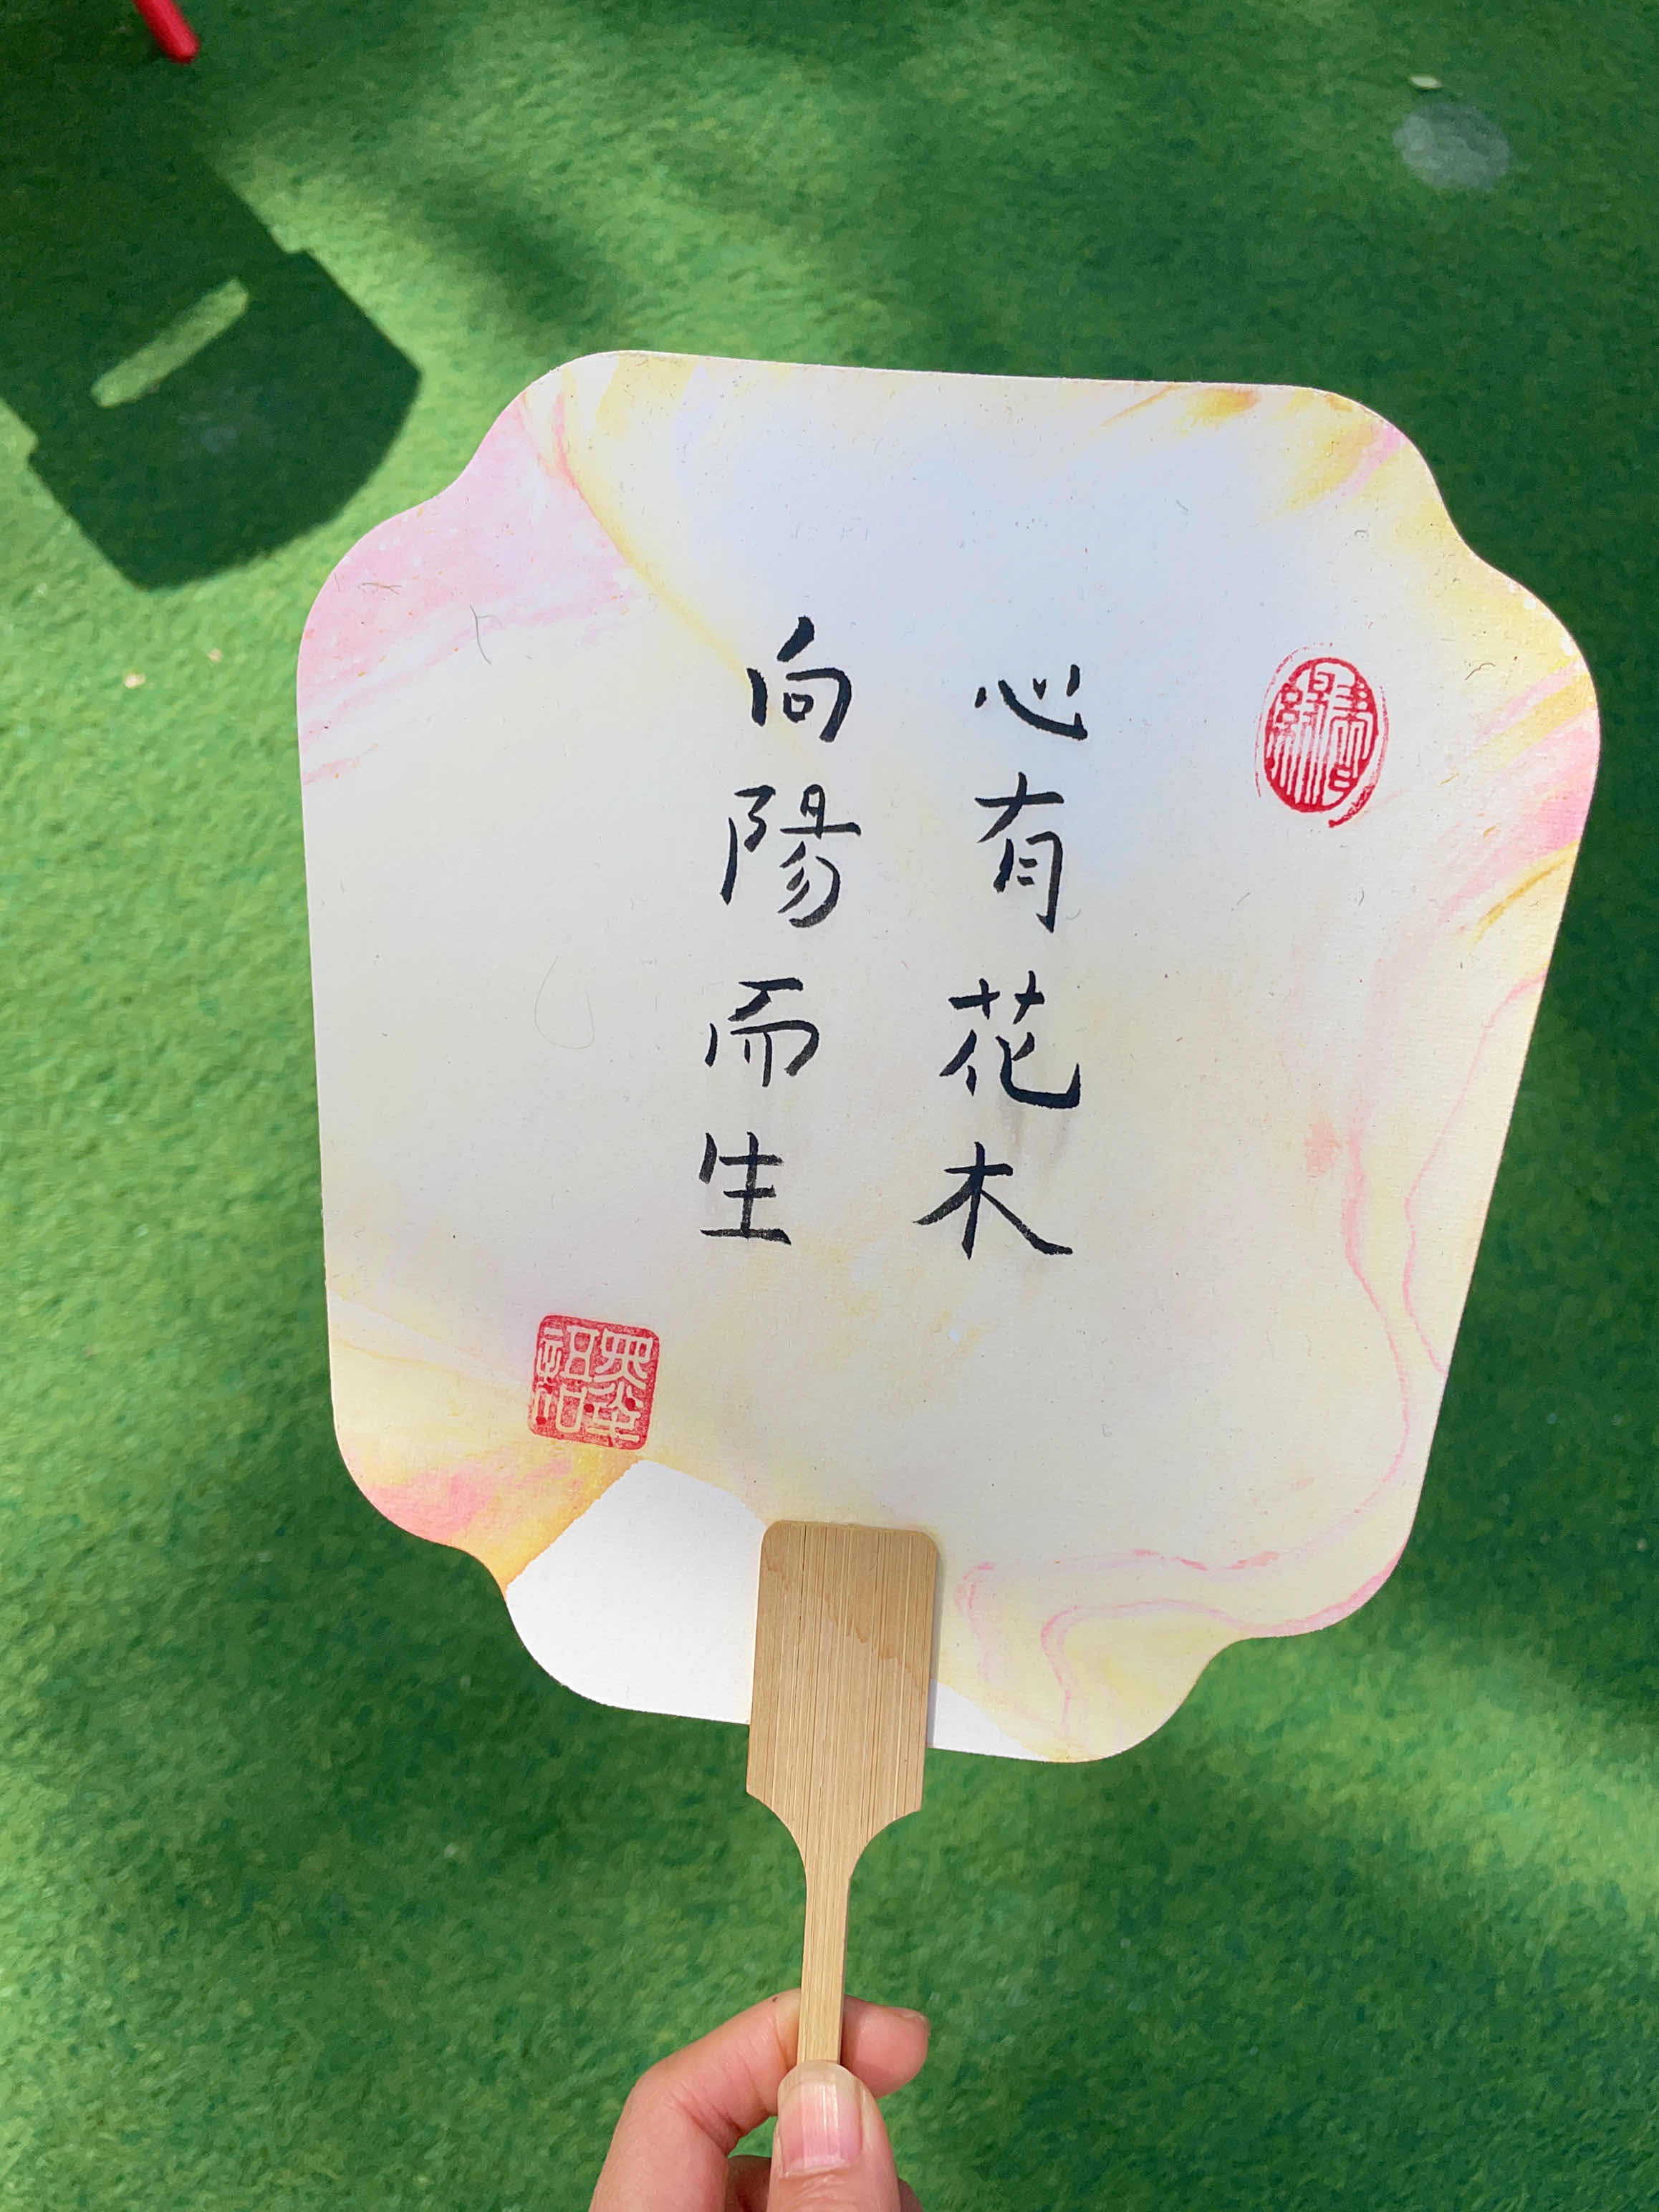 心有花木
向陽而生